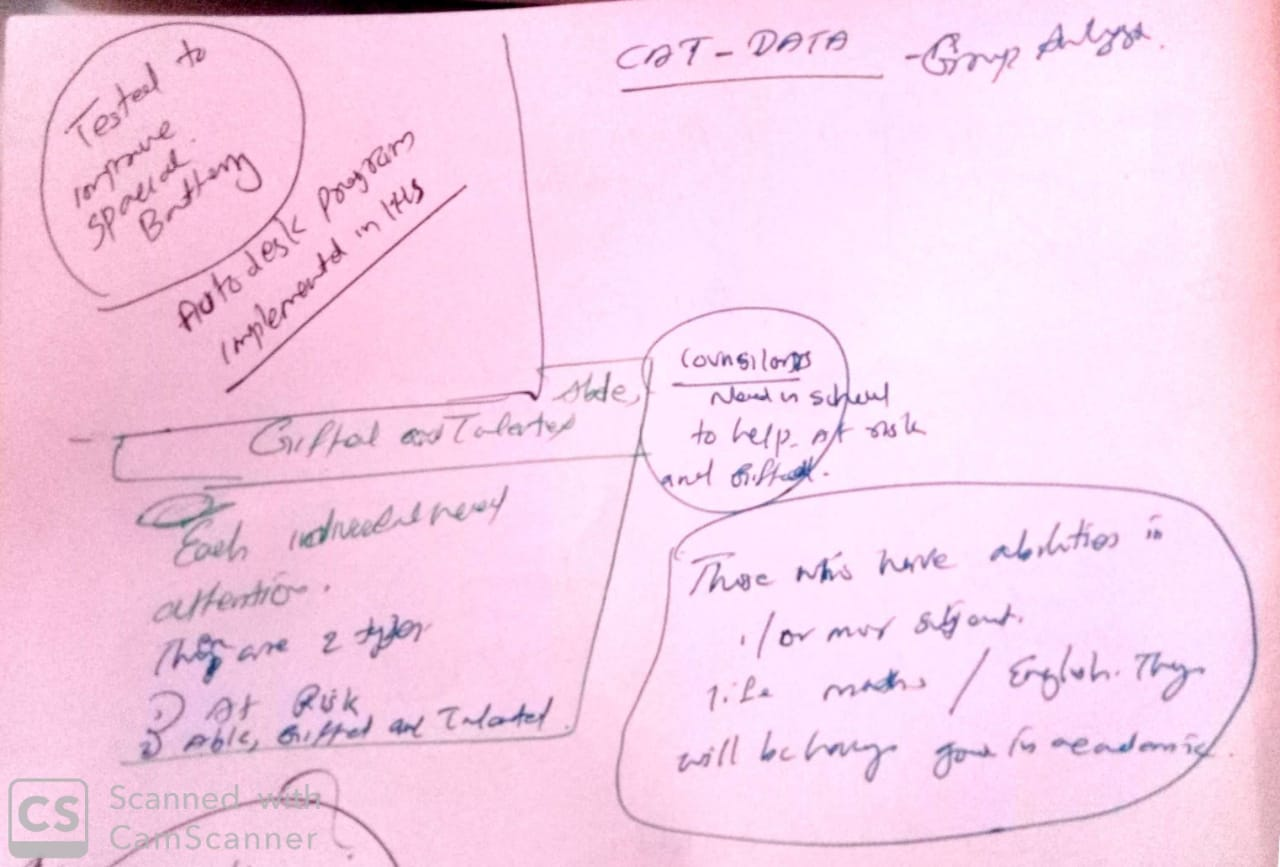 CAT-DATA - Group
Tested to
improve
spacial
Battery
Autodesk program
implemented in
Able,
Gifted and Talented
Each need
attention.
They are 2 types
1) At Risk
2) Able, Gifted and Talented
Counsilors
Need in school
to help at risk
and Gifted.
Those who have abilities in
1/or more subject.
like maths / English. They
will be good in academic.
CS
Scanned with
CamScanner